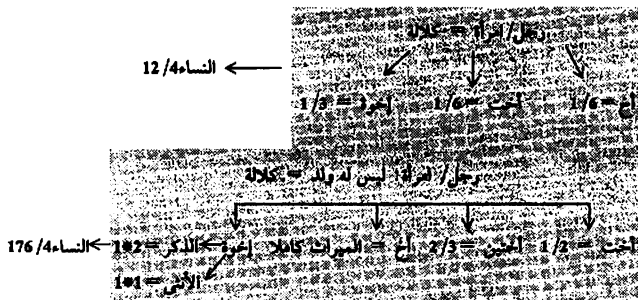 رجل/ امرأة = كلالة
النساء 12/4
أخ = 1/6 أخت = 1/6 إخوة = 1/3
رجل/ امرأة! ليس له ولد = كلالة
أخت = 1/2 أختين = 2/3 أخ = الميراث كاملا إخوة الذكر = 2*1 النساء 176/4
الأنثى = 1*1